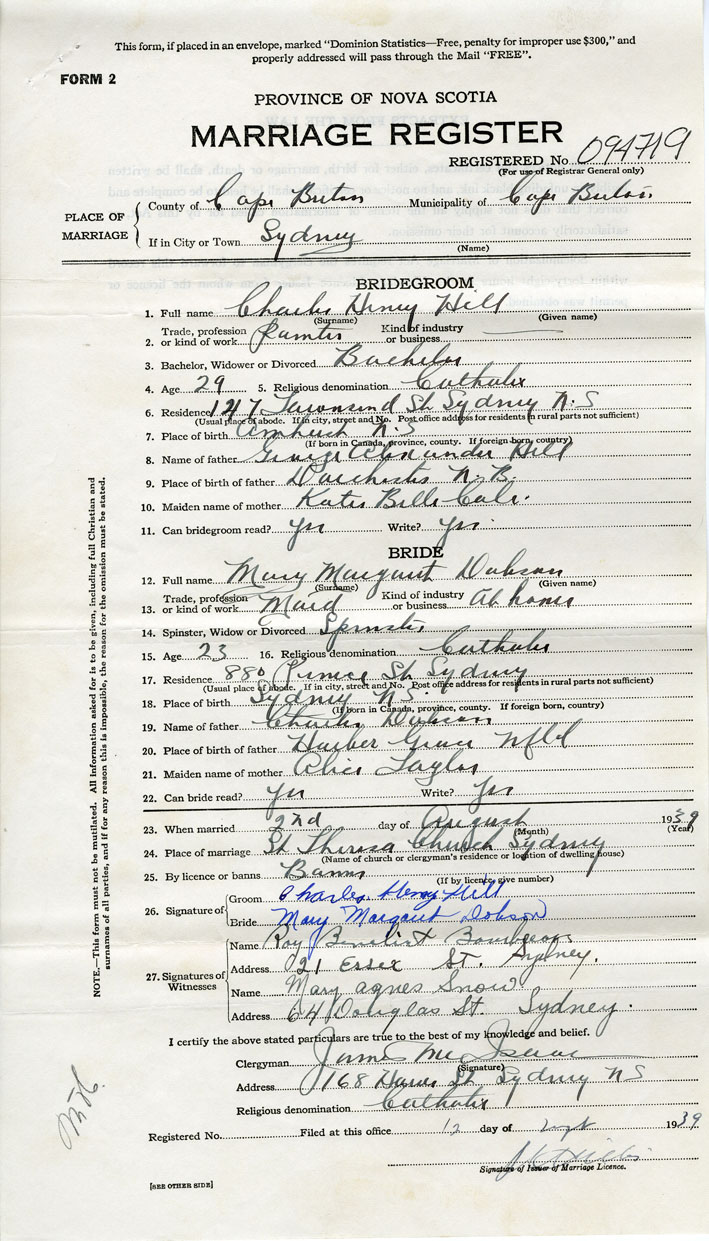 This form, if placed in an envelope, marked “Dominion Statistics—Free, penalty for improper use $300,” and
properly addressed will pass through the Mail “FREE”.
FORM 2
PROVINCE OF NOVA SCOTIA
MARRIAGE REGISTER
REGISTERED No. 094719
(For use of Registrar General only)
PLACE OF MARRIAGE
County of Cape Breton Municipality of Cape Breton
If in City or Town Sydney
(Name)
BRIDEGROOM
1. Full name Charles Henry Hill
(Surname) (Given name)
2. Trade, profession or kind of work Painter Kind of industry or business
3. Bachelor, Widower or Divorced Bachelor
4. Age 29 5. Religious denomination Catholic
6. Residence 147 Townsend St Sydney N.S
(Usual place of abode. If in city, street and No. Post office address for residents in rural parts not sufficient)
7. Place of birth Amherst N.S
(If born in Canada, province, county. If foreign born, country)
8. Name of father George Alexander Hill
9. Place of birth of father Dorchester N.B.
10. Maiden name of mother Katie Belle
11. Can bridegroom read? yes Write? yes.
BRIDE
12. Full name Mary Margaret Dobson
(Surname) (Given name)
13. Trade, profession or kind of work Maid Kind of industry or business At home
14. Spinster, Widow or Divorced Spinster
15. Age 23 16. Religious denomination Catholic
17. Residence 880 Prince St Sydney
(Usual place of abode. If in city, street and No. Post office address for residents in rural parts not sufficient)
18. Place of birth Sydney N.S.
(If born in Canada, province, county. If foreign born, country)
19. Name of father Charles Dobson
20. Place of birth of father Harbor Grace Nfld
21. Maiden name of mother Alice Taylor
22. Can bride read? yes Write? yes
23. When married 2nd day of August 1939
(Month) (Year)
24. Place of marriage St Theresa Church Sydney
(Name of church or clergyman's residence or location of dwelling house)
25. By licence or banns Banns
(If by licence, give number)
26. Signature of Groom Charles Henry Hill
Bride Mary Margaret Dobson
27. Signatures of Witnesses
Name Roy Benedict
Address 021 Essex St. Sydney.
Name Mary Agnes Snow
Address 64 Douglas St. Sydney.
I certify the above stated particulars are true to the best of my knowledge and belief.
Clergyman James McIsaac
(Signature)
Address 168 St Sydney NS
Religious denomination Catholic
Registered No. Filed at this office 12 day of Sept 1939
Signature of Issuer of Marriage Licence.
[SEE OTHER SIDE]
NOTE.—This form must not be mutilated. All information asked for is to be given, including full Christian and
surnames of all parties, and if for any reason this is impossible, the reason for the omission must be stated.